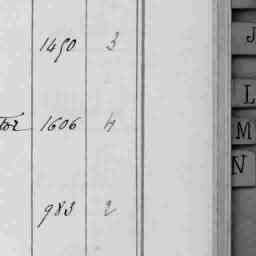 1490 3
tor 1606 4
983 2
J
L
M
N